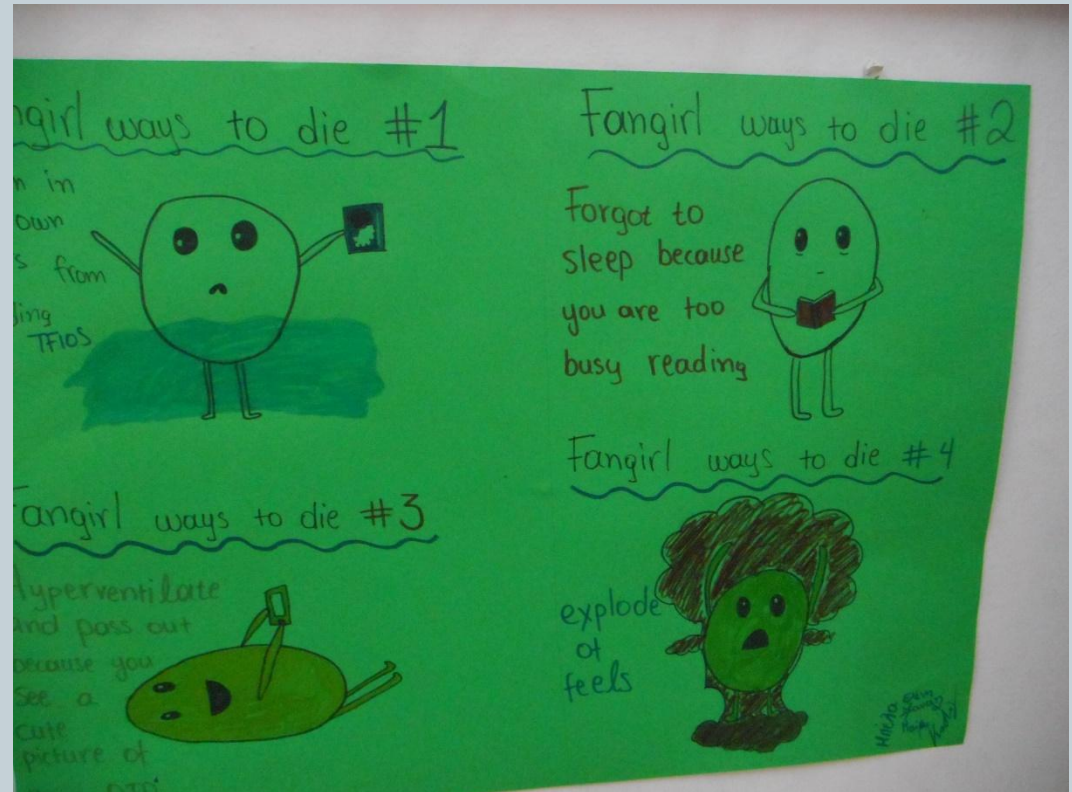 ngirl ways to die #1
n in
own
s from
ding
TFIOS
Fangirl ways to die #2
Forgot to
sleep because
you are too
busy reading
Fangirl ways to die #3
Hyperventilate
and pass out
because you
see a
cute
picture of
Fangirl ways to die #4
explode
of
feels